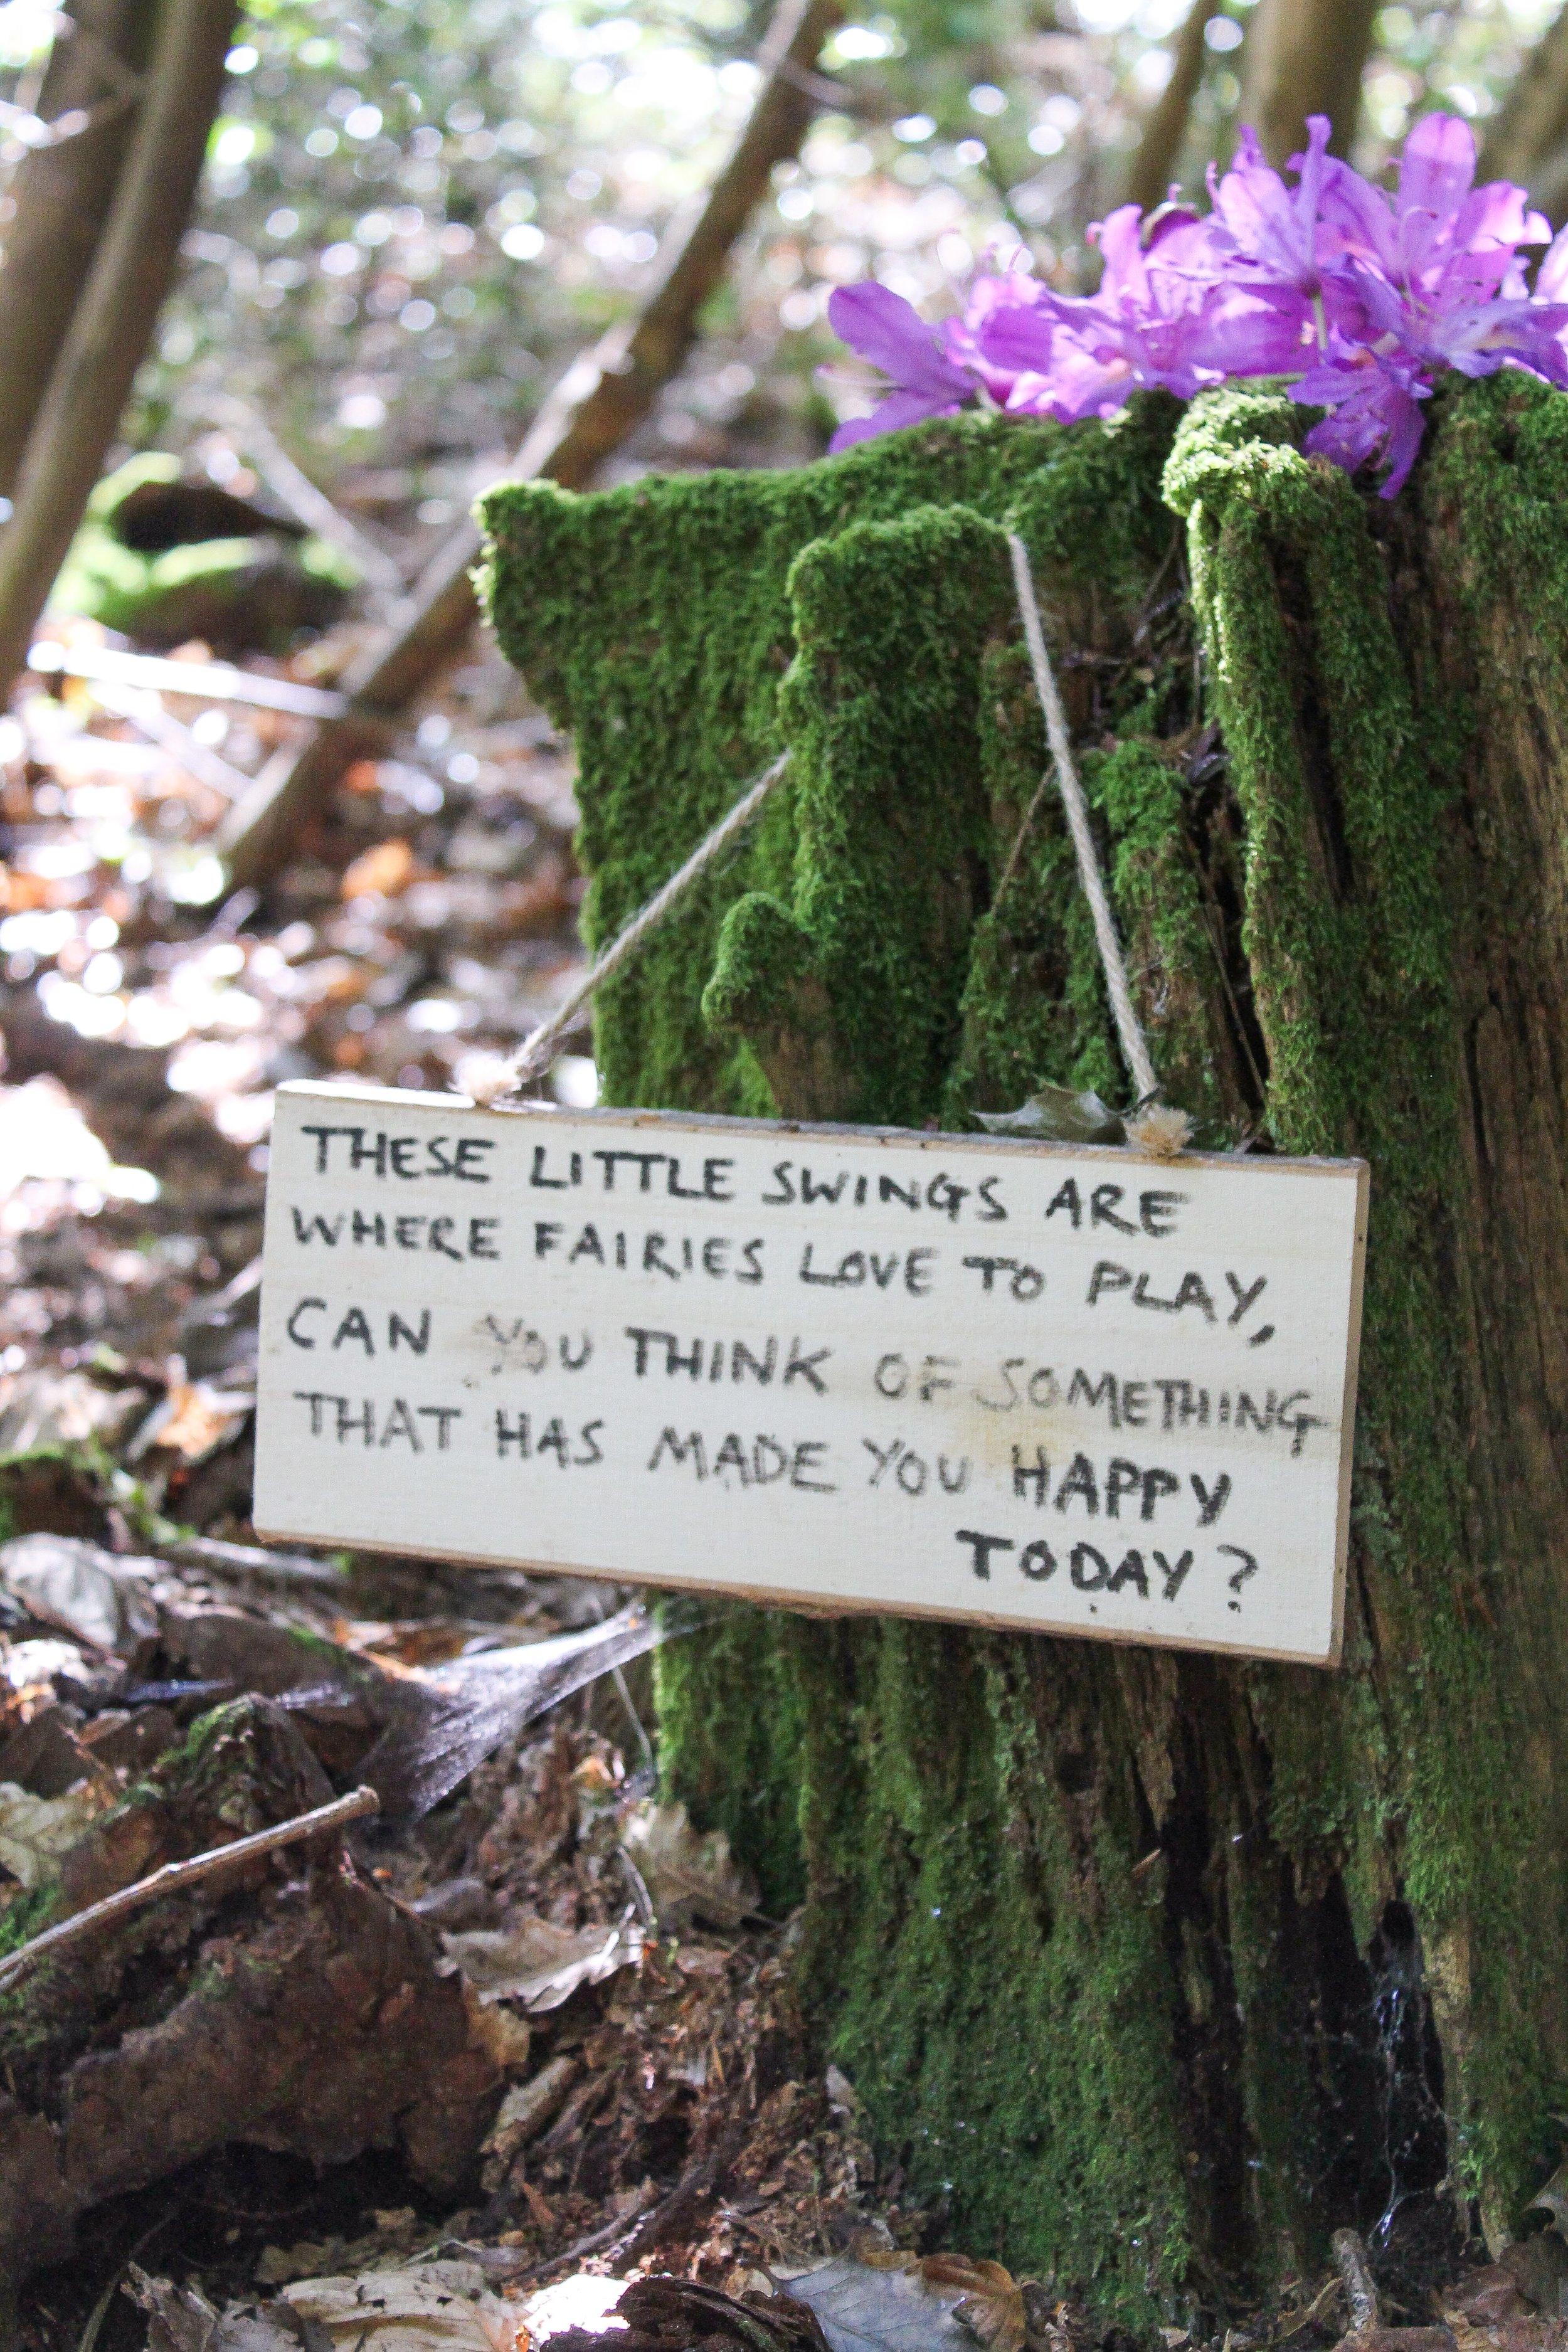 THESE LITTLE SWINGS ARE
WHERE FAIRIES LOVE TO PLAY,
CAN YOU THINK OF SOMETHING
THAT HAS MADE YOU HAPPY
TODAY?